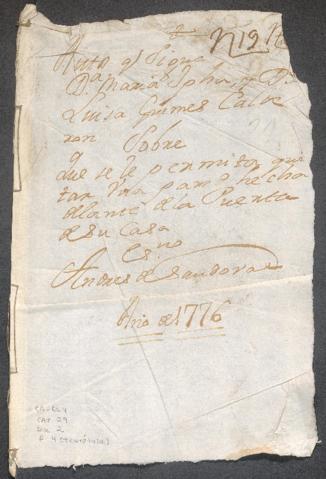 N19
Auto q̃ Sigue
D.ª Maria Ipha, y D.ª
Luisa Guimes Calde
ron Sobre
q
Que se le permita qui
tar una pampa hecha
delante de la Puerta
de su Casa
es.no
Andres de Sandoval
Año de 1776
CAP 29
Doc 2